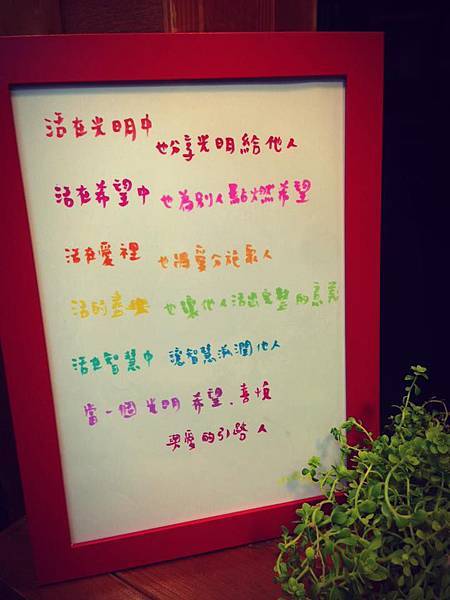 活在光明中 也分享光明給他人
活在希望中 也為別人點燃希望
活在愛裡 也將愛分施眾人
活的喜悅 也讓他人活出完整的意義
活在智慧中 讓智慧滋潤他人
當一個光明、希望、喜悅
與愛的引路人